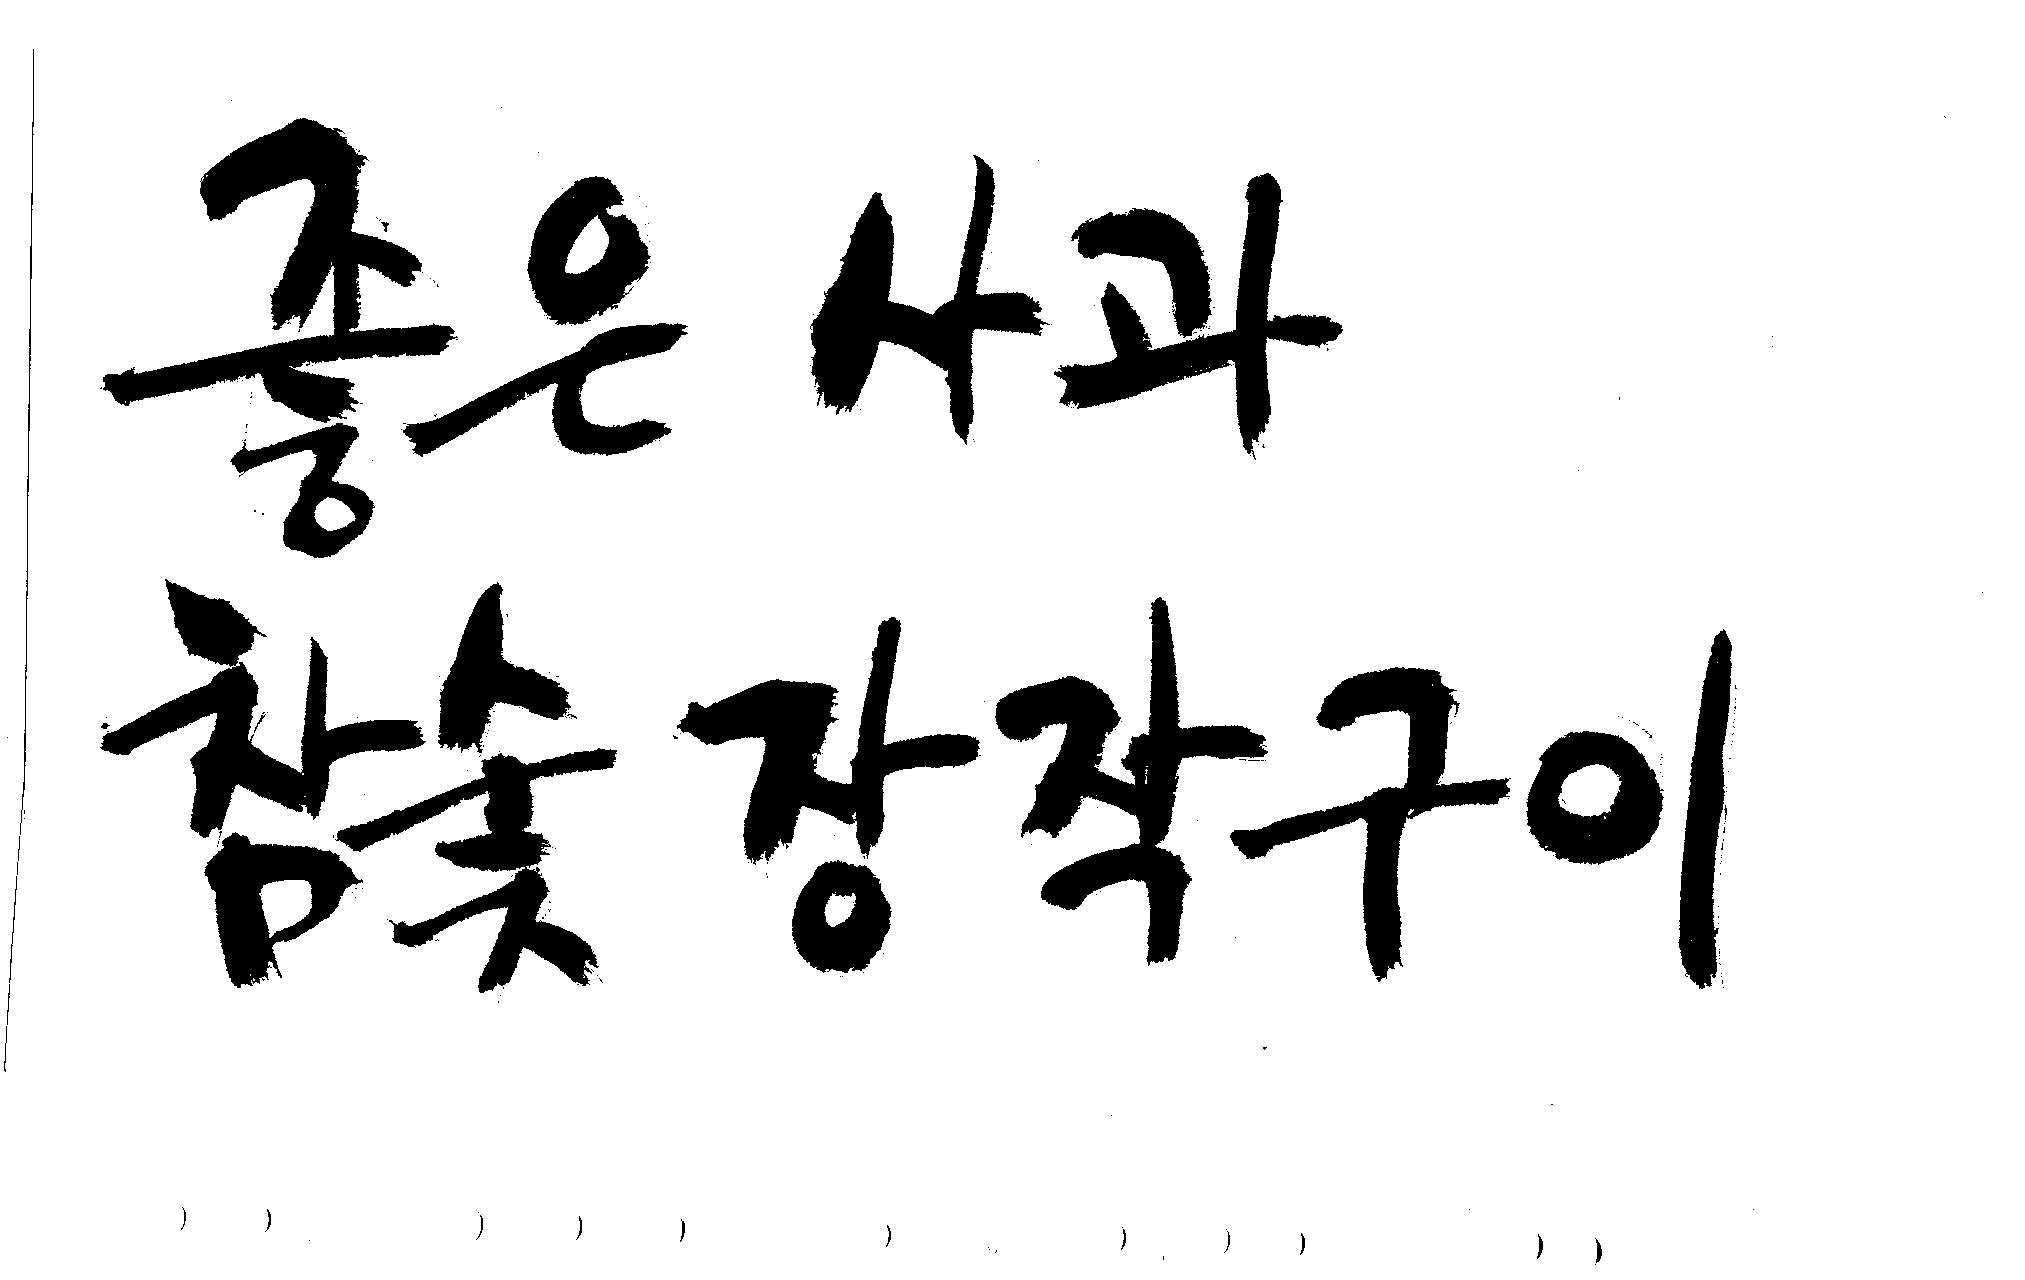 좋은 사과
참숯 장작구이